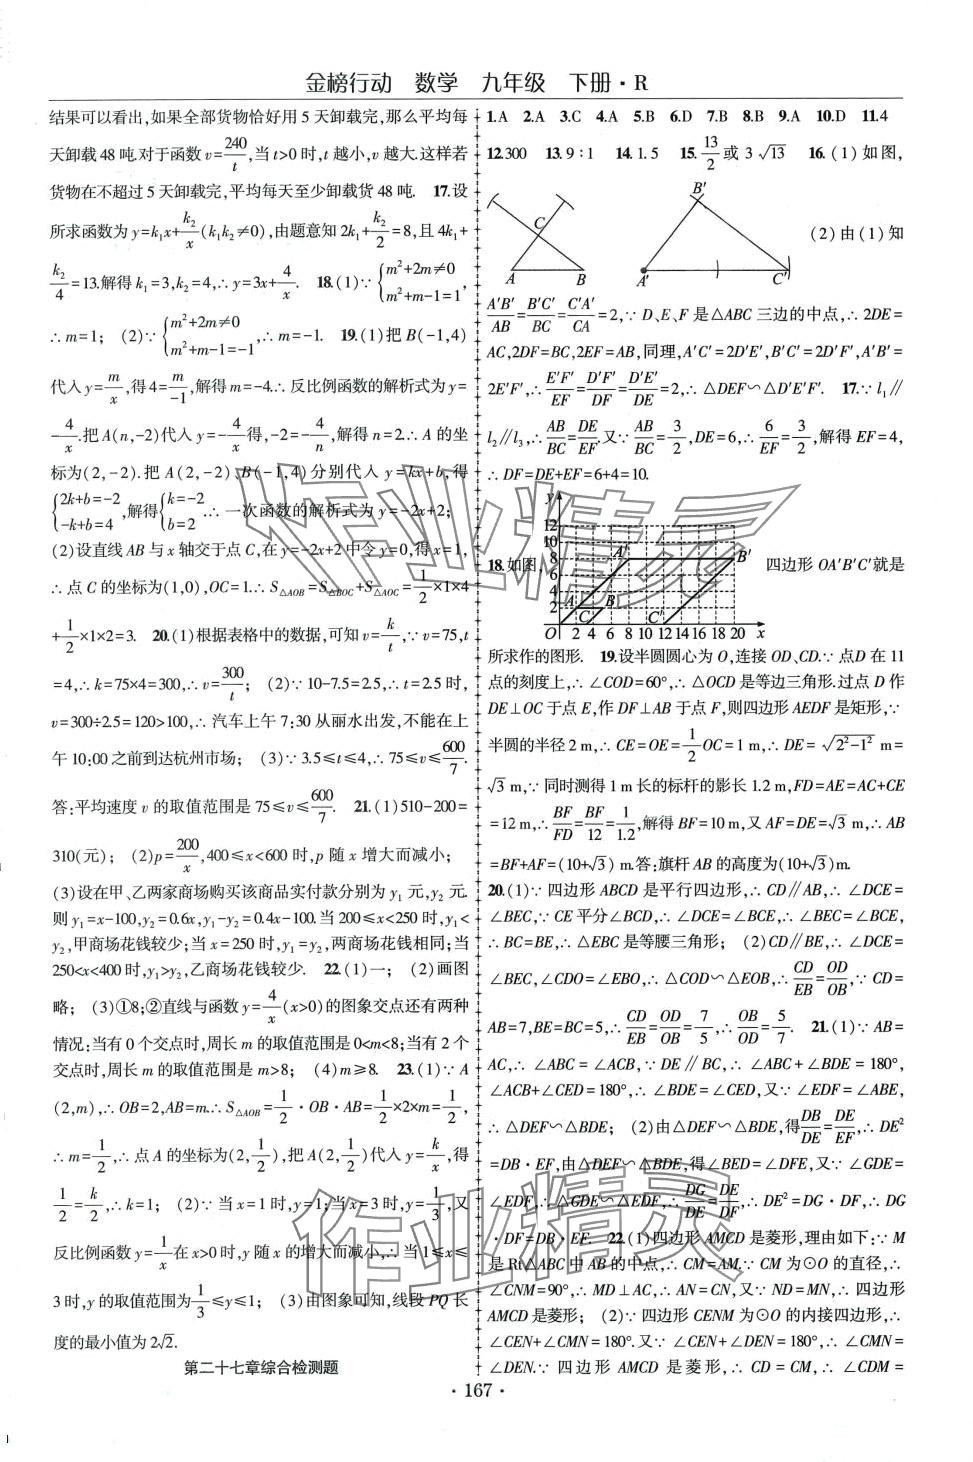 金榜行动 数学 九年级 下册·R
结果可以看出,如果全部货物恰好用 5 天卸载完,那么平均每
天卸载 48 吨.对于函数 v=240/t,当 t>0 时,t 越小,v 越大.这样若
货物在不超过 5 天卸载完,平均每天至少卸载货 48 吨. 17.设
所求函数为 y=k₁x+k₂/x(k₁k₂≠0),由题意知 2k₁+k₂/2=8,且 4k₁+
k₂/4=13.解得 k₁=3,k₂=4,∴y=3x+4/x. 18.(1)∵{m²+2m≠0 m²+m-1=1,
∴m=1; (2)∵{m²+2m≠0 m²+m-1=-1,∴m=-1. 19.(1)把 B(-1,4)
代入 y=m/x,得 4=m/-1,解得 m=-4.∴反比例函数的解析式为 y=
-4/x.把 A(n,-2)代入 y=-4/x得,-2=-4/n,解得 n=2.∴A 的坐
标为(2,-2).把 A(2,-2)、B(-1,4)分别代入 y=kx+b,得
{2k+b=-2 -k+b=4,解得{k=-2 b=2.∴一次函数的解析式为 y=-2x+2;
(2)设直线 AB 与 x 轴交于点 C,在 y=-2x+2 中令 y=0,得 x=1,
∴点 C 的坐标为(1,0),OC=1.∴S△AOB=S△BOC+S△AOC=1/2×1×4
+1/2×1×2=3. 20.(1)根据表格中的数据,可知 v=k/t,∵v=75,t
=4,∴k=75×4=300,∴v=300/t; (2)∵10-7.5=2.5,∴t=2.5 时,
v=300÷2.5=120>100,∴汽车上午 7:30 从丽水出发,不能在上
午 10:00 之前到达杭州市场; (3)∵3.5≤t≤4,∴75≤v≤600/7.
答:平均速度 v 的取值范围是 75≤v≤600/7. 21.(1)510-200=
310(元); (2)p=200/x,400≤x<600 时,p 随 x 增大而减小;
(3)设在甲、乙两家商场购买该商品实付款分别为 y₁ 元,y₂ 元.
则 y₁=x-100,y₂=0.6x,y₁-y₂=0.4x-100.当 200≤x<250 时,y₁<
y₂,甲商场花钱较少;当 x=250 时,y₁=y₂,两商场花钱相同;当
250<x<400 时,y₁>y₂,乙商场花钱较少. 22.(1)一; (2)画图
略; (3)①8;②直线与函数 y=4/x(x>0)的图象交点还有两种
情况:当有 0 个交点时,周长 m 的取值范围是 0<m<8;当有 2 个
交点时,周长 m 的取值范围是 m>8; (4)m≥8. 23.(1)∵A
(2,m),∴OB=2,AB=m.∴S△AOB=1/2·OB·AB=1/2×2×m=1/2,
∴m=1/2,∴点 A 的坐标为(2,1/2),把 A(2,1/2)代入 y=k/x,得
1/2=k/2,∴k=1; (2)∵当 x=1 时,y=1;当 x=3 时,y=1/3,又
反比例函数 y=1/x在 x>0 时,y 随 x 的增大而减小,∴当 1≤x≤
3 时,y 的取值范围为1/3≤y≤1; (3)由图象可知,线段 PQ 长
度的最小值为 2√2.
第二十七章综合检测题
1.A 2.A 3.C 4.A 5.B 6.D 7.B 8.B 9.A 10.D 11.4
12.300 13.9∶1 14.1.5 15.13/2或 3√13 16.(1)如图,
C A B B′ A′ C′ (2)由(1)知
A′B′/AB=B′C′/BC=C′A′/CA=2,∵D、E、F 是△ABC 三边的中点,∴2DE=
AC,2DF=BC,2EF=AB,同理,A′C′=2D′E′,B′C′=2D′F′,A′B′=
2E′F′,∴E′F′/EF=D′F′/DF=D′E′/DE=2,∴△DEF∽△D′E′F′. 17.∵l₁∥
l₂∥l₃,∴AB/BC=DE/EF.又∵AB/BC=3/2,DE=6,∴6/EF=3/2,解得 EF=4,
∴DF=DE+EF=6+4=10.
y 12 10 8 6 4 2 A′ B′ A B C C′ O 2 4 6 8 10 12 14 16 18 20 x
18.如图, 四边形 OA′B′C′就是
所求作的图形. 19.设半圆圆心为 O,连接 OD、CD.∵点 D 在 11
点的刻度上,∴∠COD=60°,∴△OCD 是等边三角形.过点 D 作
DE⊥OC 于点 E,作 DF⊥AB 于点 F,则四边形 AEDF 是矩形,∵
半圆的半径 2 m,∴CE=OE=1/2OC=1 m,∴DE=√2²-1² m=
√3 m,∵同时测得 1 m 长的标杆的影长 1.2 m,FD=AE=AC+CE
=12 m,∴BF/FD=BF/12=1/1.2,解得 BF=10 m,又 AF=DE=√3 m,∴AB
=BF+AF=(10+√3) m.答:旗杆 AB 的高度为(10+√3)m.
20.(1)∵四边形 ABCD 是平行四边形,∴CD∥AB,∴∠DCE=
∠BEC,∵CE 平分∠BCD,∴∠DCE=∠BCE,∴∠BEC=∠BCE,
∴BC=BE,∴△EBC 是等腰三角形; (2)CD∥BE,∴∠DCE=
∠BEC,∠CDO=∠EBO,∴△COD∽△EOB,∴CD/EB=OD/OB,∵CD=
AB=7,BE=BC=5,∴CD/EB=OD/OB=7/5,∴OB/OD=5/7. 21.(1)∵AB=
AC,∴∠ABC=∠ACB,∵DE∥BC,∴∠ABC+∠BDE=180°,
∠ACB+∠CED=180°,∴∠BDE=∠CED,又∵∠EDF=∠ABE,
∴△DEF∽△BDE; (2)由△DEF∽△BDE,得DB/DE=DE/EF,∴DE²
=DB·EF,由△DEF∽△BDE,得∠BED=∠DFE,又∵∠GDE=
∠EDF,∴△GDE∽△EDF,∴DG/DE=DE/DF,∴DE²=DG·DF,∴DG
·DF=DB·EF. 22.(1)四边形 AMCD 是菱形,理由如下:∵M
是 Rt△ABC 中 AB 的中点,∴CM=AM.∵CM 为⊙O 的直径,∴
∠CNM=90°,∴MD⊥AC,∴AN=CN,又∵ND=MN,∴四边形
AMCD 是菱形; (2)∵四边形 CENM 为⊙O 的内接四边形,∴
∠CEN+∠CMN=180°.又∵∠CEN+∠DEN=180°,∴∠CMN=
∠DEN.∵四边形 AMCD 是菱形,∴CD=CM,∴∠CDM=
·167·
作业精灵
作业精灵